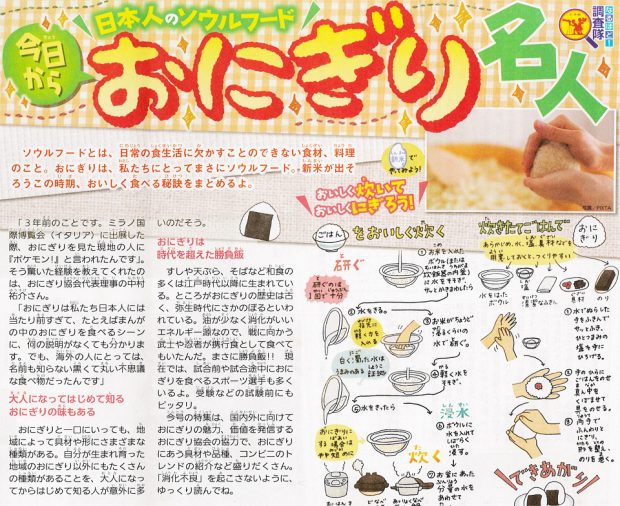 日本人のソウルフード
今日から
おにぎり
名人
なるほど！
調査隊
ソウルフードとは、日常の食生活に欠かすことのできない食材、料理
のこと。おにぎりは、私たちにとってまさにソウルフード。新米が出そ
ろうこの時期、おいしく食べる秘訣をまとめるよ。
写真／PIXTA
新米で
やってみよう！
おいしく炊いて
おいしくにぎろう！
「３年前のことです。ミラノ国
際博覧会（イタリア）に出展した
際、おにぎりを見た現地の人に
『ポケモン！』と言われたんです」。
そう驚いた経験を教えてくれたの
は、おにぎり協会代表理事の中村
祐介さん。
「おにぎりは私たち日本人には
当たり前すぎて、たとえばまんが
の中のおにぎりを食べるシーン
に、何の説明がなくても分かりま
す。でも、海外の人にとっては、
名前も知らない黒くて丸い不思議
な食べ物だったんです」
大人になってはじめて知る
おにぎりの味もある
おにぎりと一口にいっても、地
域によって具材や形にさまざまな
種類がある。自分が生まれ育った
地域のおにぎり以外にもたくさん
の種類があることを、大人になっ
てからはじめて知る人が意外に多
いのだそう。
おにぎりは
時代を超えた勝負飯
すしや天ぷら、そばなど和食の
多くは江戸時代以降に生まれてい
る。ところがおにぎりの歴史は古
く、弥生時代にさかのぼるといわ
れている。油が少なく消化がいい
エネルギー源なので、戦に向かう
武士や忍者が携行食として食べて
もいたんだ。まさに勝負飯!!　現
在では、試合前や試合途中におに
ぎりを食べるスポーツ選手も多く
いるよ。受験などの試験前にも
ピッタリ。
今号の特集は、国内外に向けて
おにぎりの魅力、価値を発信する
おにぎり協会の協力で、おにぎり
にあう具材や品種、コンビニのト
レンドの紹介など盛りだくさん。
「消化不良」を起こさないように、
ゆっくり読んでね。
ごはんをおいしく炊く
研ぐ
研ぐのは
1回で十分
①お米を入れた
ボウル（または
炊飯器の内釜）
に水をそそぎ、
サッとかきまわしたら
②水をきる。
③お米がちょうど
浸るくらいの
水で研ぐ。
白く濁った水は
うまみのある証拠
④軽く水を
すすぎ、
⑤水をきったら
浸水
⑥ボウルに
水を入れて
しばらく
浸す。
炊く
⑦釜に
お米と
分量の水を
あわせて
炊きたてごはんで
おにぎり
あらかじめ、水、塩、具材などを
用意しておくと、つくりやすい
水をはった
ボウル
塩
清潔なふきん
具材
のり
①水でぬらした
手をふきんで
サッとふき、
ひとつまみの
塩を手に
ひろげる。
できあがり